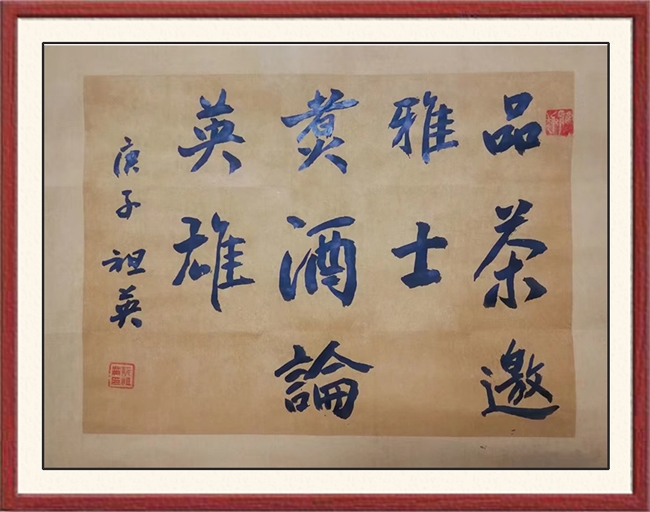 品茶邀
雅士
煮酒論
英雄
庚子 祖英